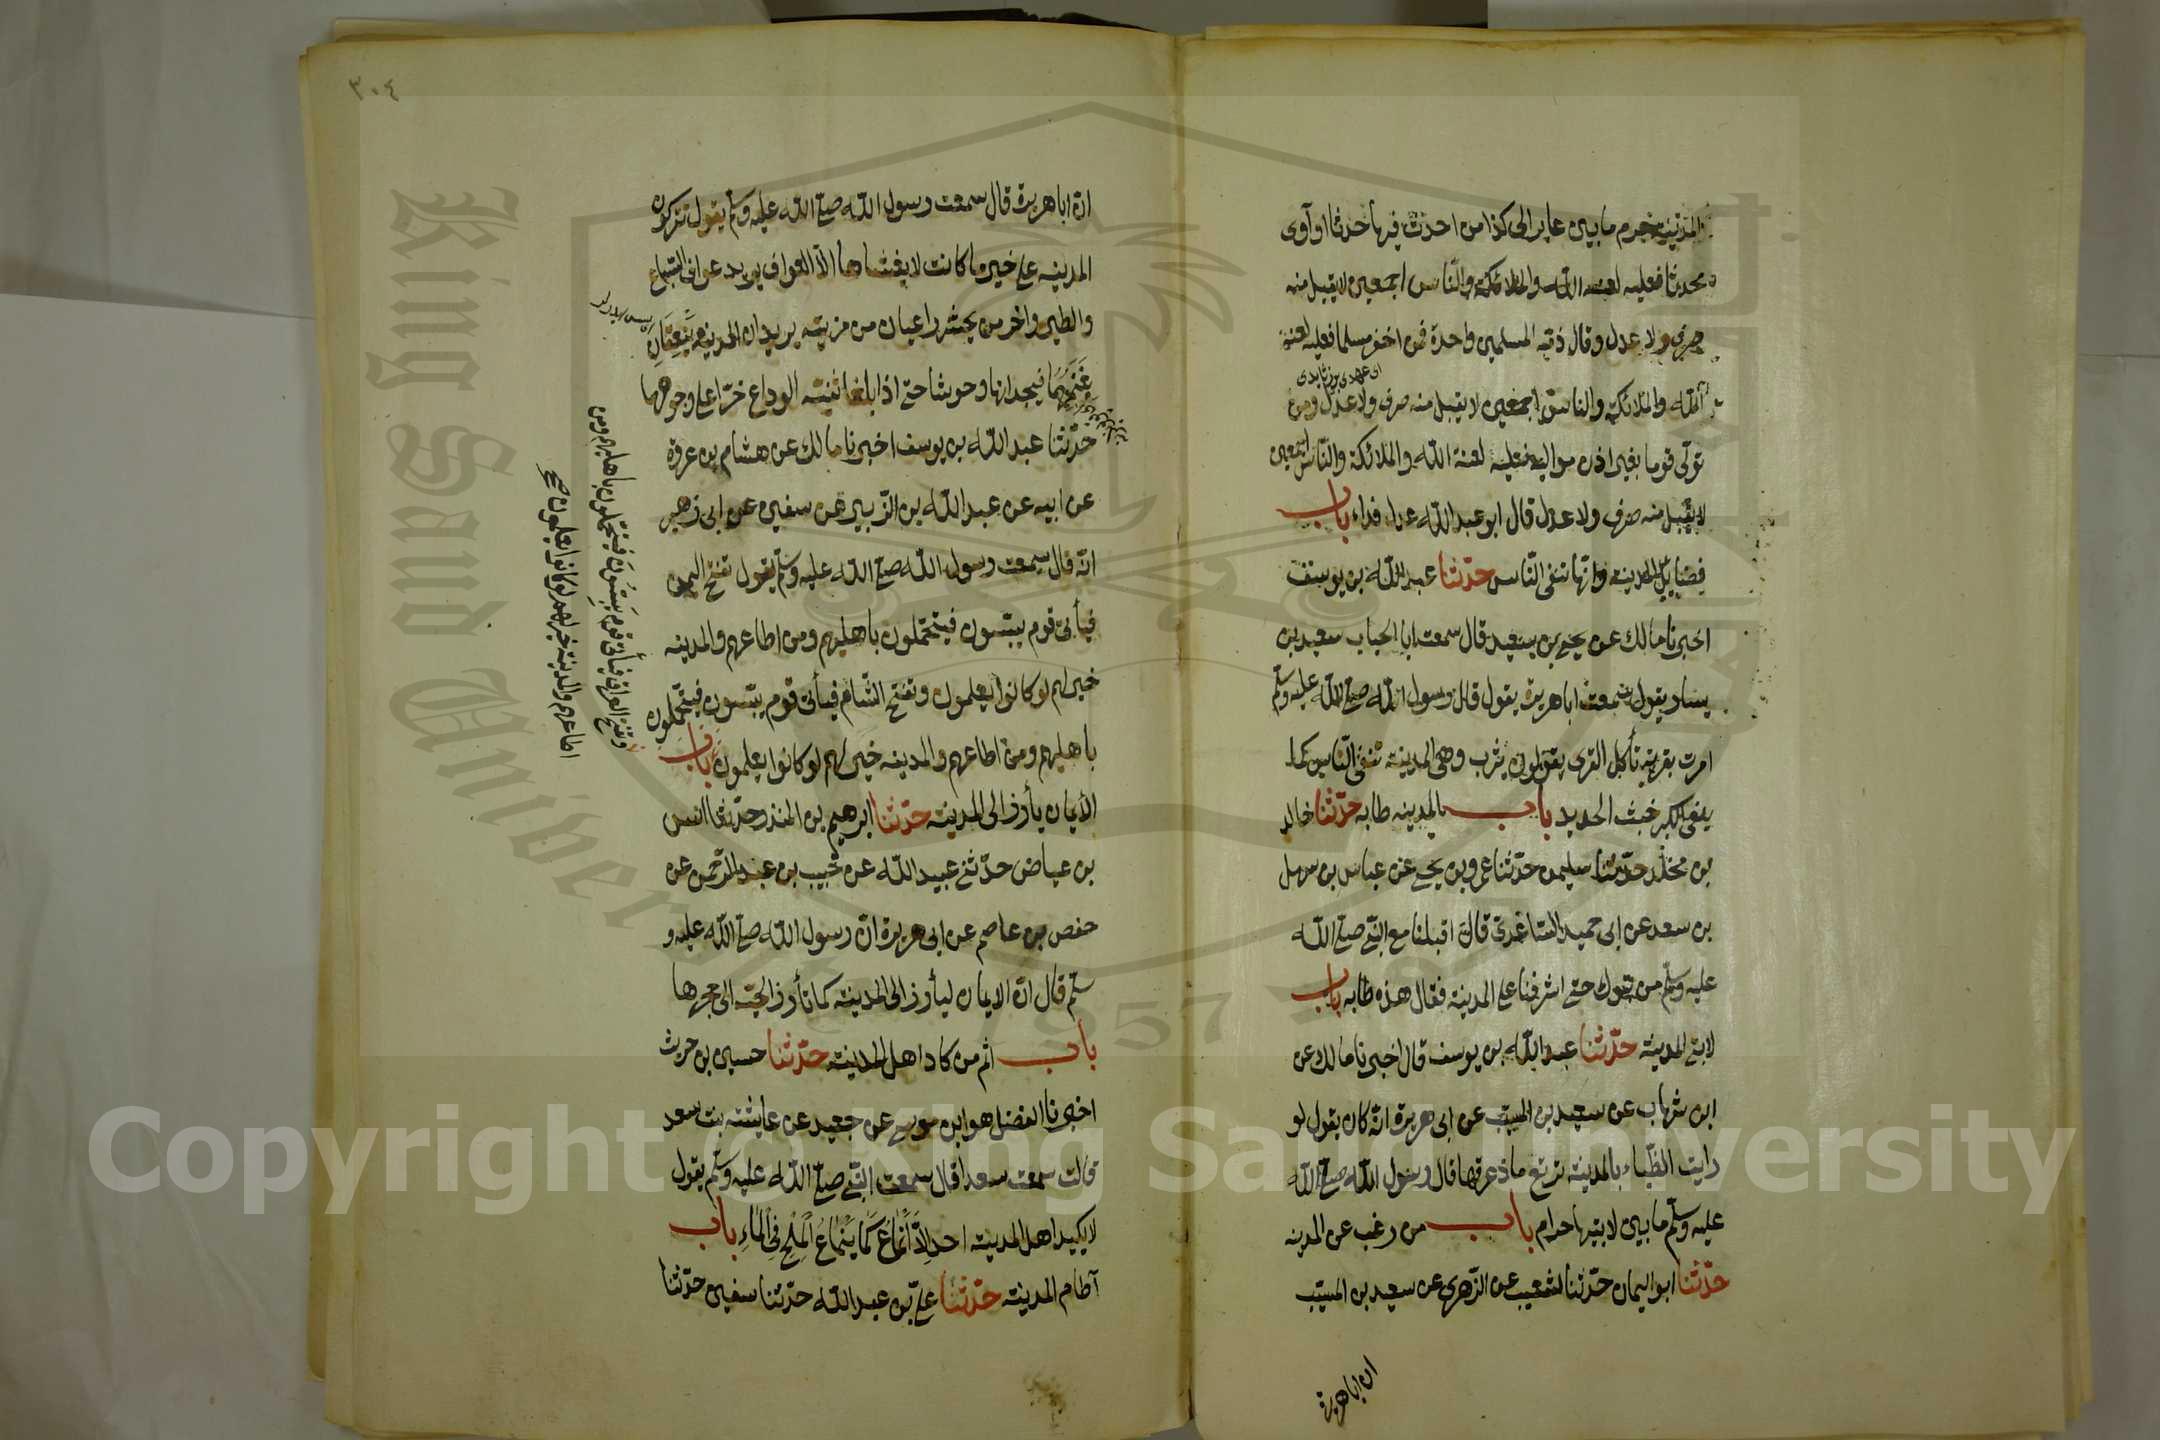 المدينة حرم ما بين عاير الى كذا من احدث فيها حدثا او آوى
محدثا فعليه لعنة الله والملائكة والناس اجمعين لا يقبل منه
صرف ولا عدل وقال ذمة المسلمين واحدة فمن اخفر مسلما فعليه لعنة
الله والملائكة والناس اجمعين لا يقبل منه صرف ولا عدل ومن
تولى قوما بغير اذن مواليه فعليه لعنة الله والملائكة والناس اجمعين
لا يقبل منه صرف ولا عدل قال ابو عبد الله عدل فداء باب
فضايل المدينة وانها تنفى الناس حدثنا عبد الله بن يوسف
اخبرنا مالك عن يحيى بن سعيد قال سمعت ابا الحباب سعيد بن
يسار يقول سمعت ابا هريرة يقول قال رسول الله صلى الله عليه وسلم
امرت بقرية تأكل القرى يقولون يثرب وهى المدينة تنفى الناس كما
ينفى الكير خبث الحديد باب المدينة طابه حدثنا خالد
بن مخلد حدثنا سليمن حدثنا عمرو بن يحيى عن عباس بن سهل
بن سعد عن ابى حميد الساعدى قال اقبلنا مع النبى صلى الله
عليه وسلم من تبوك حتى اشرفنا على المدينة فقال هذه طابه باب
لابتى المدينة حدثنا عبد الله بن يوسف قال اخبرنا مالك عن
ابن شهاب عن سعيد بن المسيب عن ابى هريرة انه كان يقول لو
رايت الظباء بالمدينة ترتع ما ذعرتها قال رسول الله صلى الله
عليه وسلم ما بين لابتيها حرام باب من رغب عن المدينه
حدثنا ابو اليمان حدثنا شعيب عن الزهرى عن سعيد بن المسيب
ان ابا هريرة
٣٠٤
ان ابا هريرة قال سمعت رسول الله صلى الله عليه وسلم يقول تتركون
المدينه على خير ما كانت لا يغشاها الا العوافى يريد عوافى السباع
والطير واخر من يحشر راعيان من مزينه يريدان المدينه ينعقان
بغنمهما فيجدانها وحوشا حتى اذا بلغا ثنية الوداع خرا على وجوههما
حدثنا عبد الله بن يوسف اخبرنا مالك عن هشام بن عروة
عن ابيه عن عبد الله بن الزبير عن سفين عن ابى زهير
انه قال سمعت رسول الله صلى الله عليه وسلم يقول تفتح اليمن
فيأتى قوم يبسون فيتحملون باهليهم ومن اطاعهم والمدينه
خير لهم لو كانوا يعلمون وتفتح الشام فيأتى قوم يبسون فيتحملون
باهليهم ومن اطاعهم والمدينه خير لهم لو كانوا يعلمون باب
الايمان يأرز الى المدينة حدثنا ابرهيم بن المنذر حدثنا انس
بن عياض حدثنى عبيد الله عن خبيب بن عبد الرحمن عن
حفص بن عاصم عن ابى هريرة ان رسول الله صلى الله عليه و
سلم قال ان الايمان ليأرز الى المدينة كما تأرز الحية الى جحرها
باب اثم من كاد اهل المدينه حدثنا حسين بن حريث
اخبرنا الفضل هو ابن موسى عن جعيد عن عايشة بنت سعد
قالت سمعت سعدا قال سمعت النبى صلى الله عليه وسلم يقول
لا يكيد اهل المدينه احد اِلاَّ اَنْمَاعَ كَمَا يَنْمَاعُ الْمِلْحُ فِى الْمَاءِ باب
آطام المدينه حدثنا على بن عبد الله حدثنا سفين حدثنا
وتفتح العراق فيأتى قوم يبسون فيتحملون باهليهم ومن
اطاعهم والمدينة خير لهم لو كانوا يعلمون صح
King Saud University
1957
Copyright © King Saud University